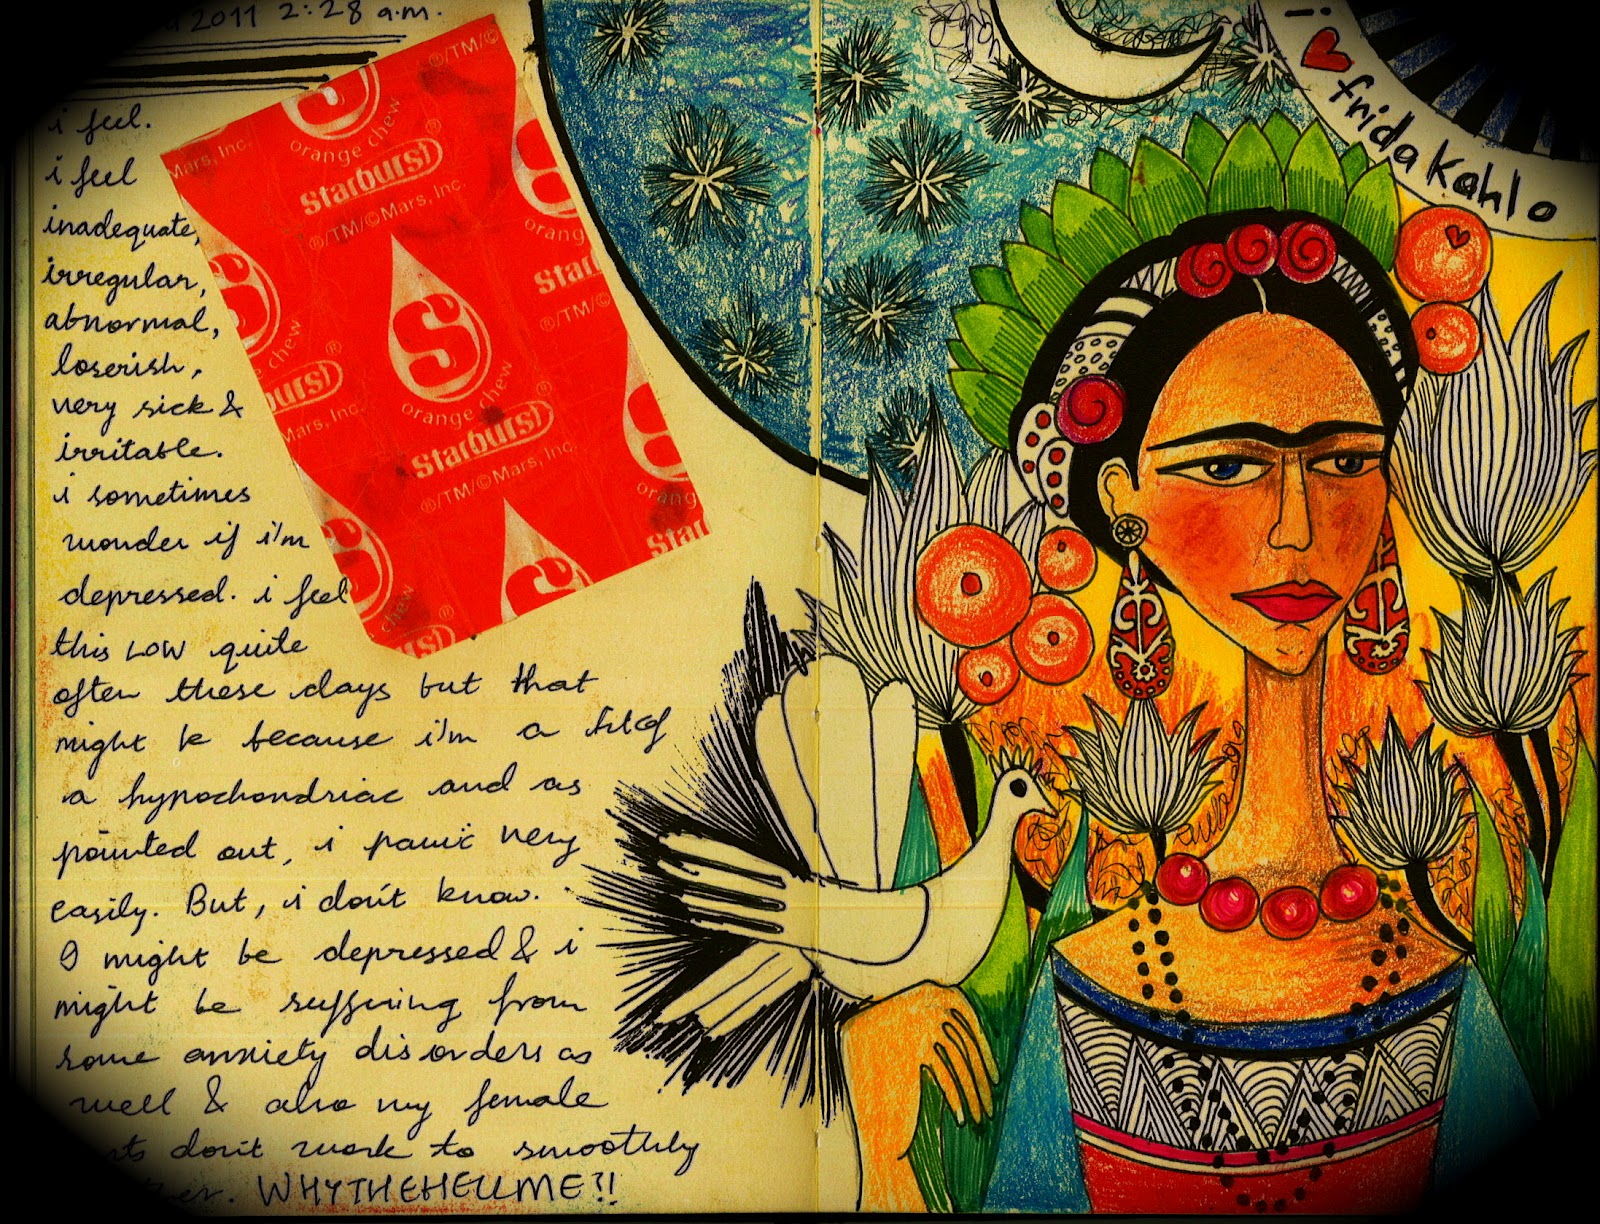 2011 2:28 a.m.
i feel.
i feel
inadequate,
irregular,
abnormal,
loserish,
very sick &
irritable.
i sometimes
wonder if i'm
depressed. i feel
this LOW quite
often these days but that
might be because i'm a
a hypochondriac and as
pointed out, i panic very
easily. But, i don't know.
I might be depressed & i
might be suffering from
some anxiety disorders as
well & also my female
don't work to smoothly
WHYTHEHELLME?!
®/TM/©
Mars, Inc.
orange chew
Starburst®
®/TM/©Mars, Inc.
S
orange chew
Starburst®
®/TM/©Mars, Inc.
i ♥ frida Kahlo